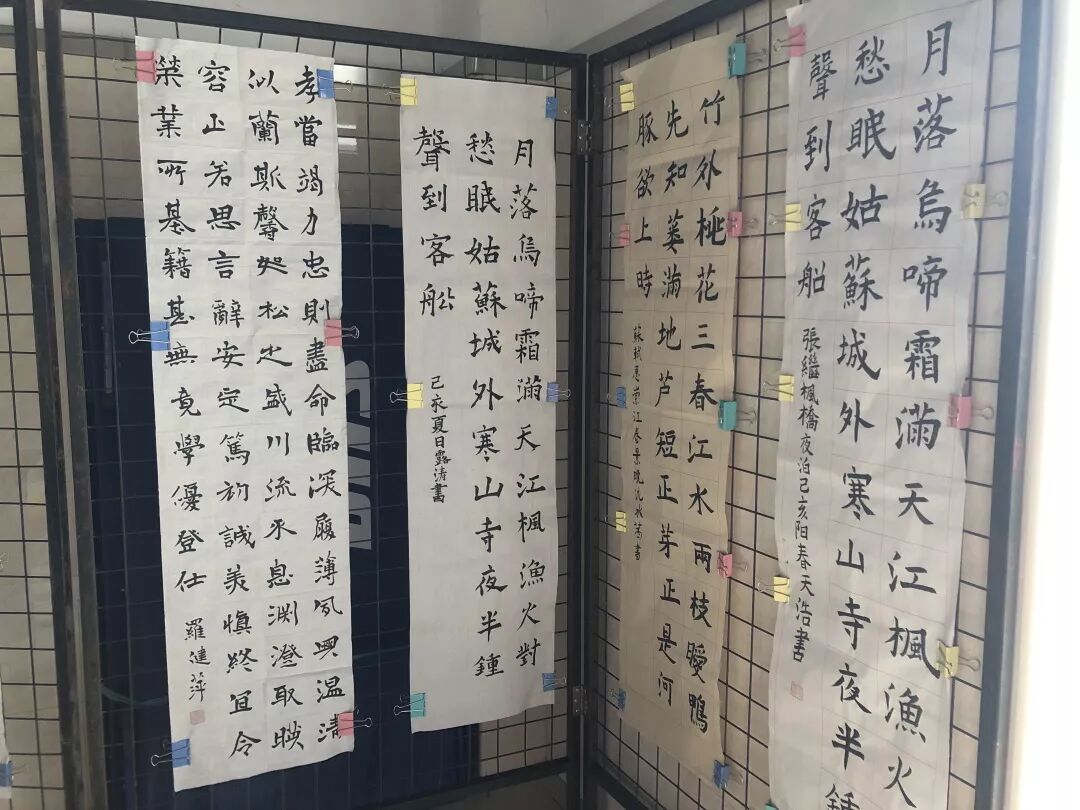 月落烏啼霜滿天江楓漁火
愁眠姑蘇城外寒山寺夜半鍾
聲到客船
張繼楓橋夜泊己亥阳春天浩書
竹外桃花三春江水兩枝曖鴨
先知蒌滿地芦短正芽正是河
豚欲上時
蘇軾惠崇江春景晚
月落烏啼霜滿天江楓漁火對
愁眠姑蘇城外寒山寺夜半鍾
聲到客船
己亥夏日露涛書
孝當竭力忠則盡命臨深履薄夙興温清
似蘭斯馨如松之盛川流不息淵澄取暎
容止若思言辭安定篤初誠美慎終宜令
榮業所基籍甚無竟學優登仕
羅健萍